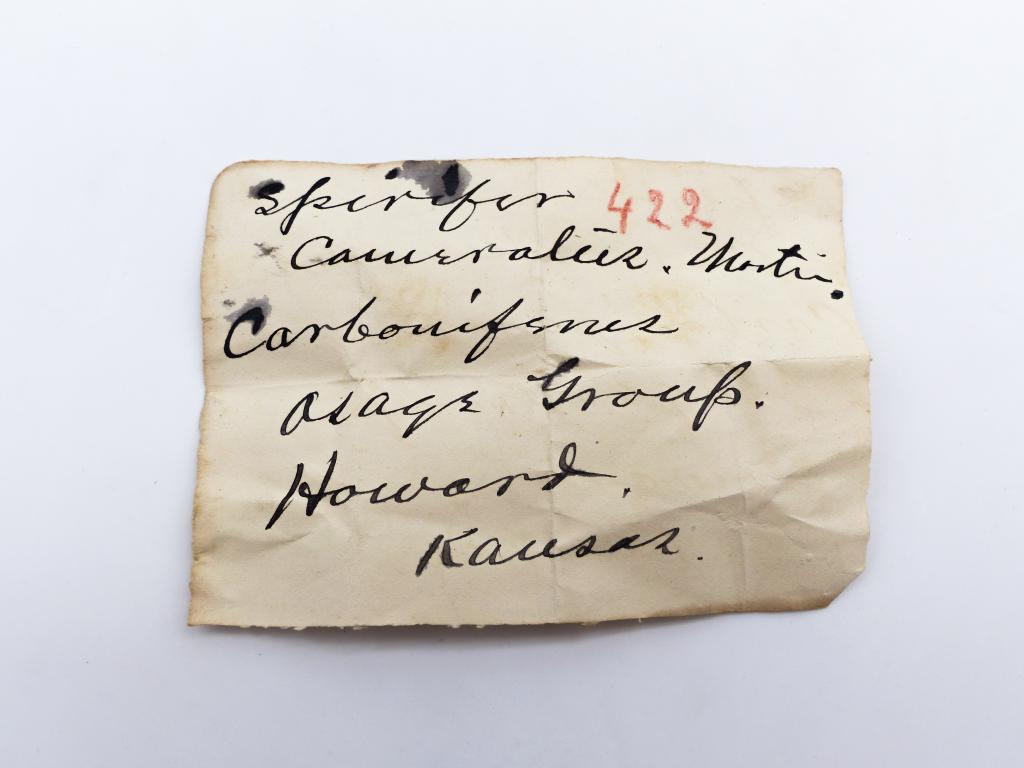 Spirifer 422
Cameratus. Martin.
Carboniferus
Osage Group.
Howard.
Kansas.